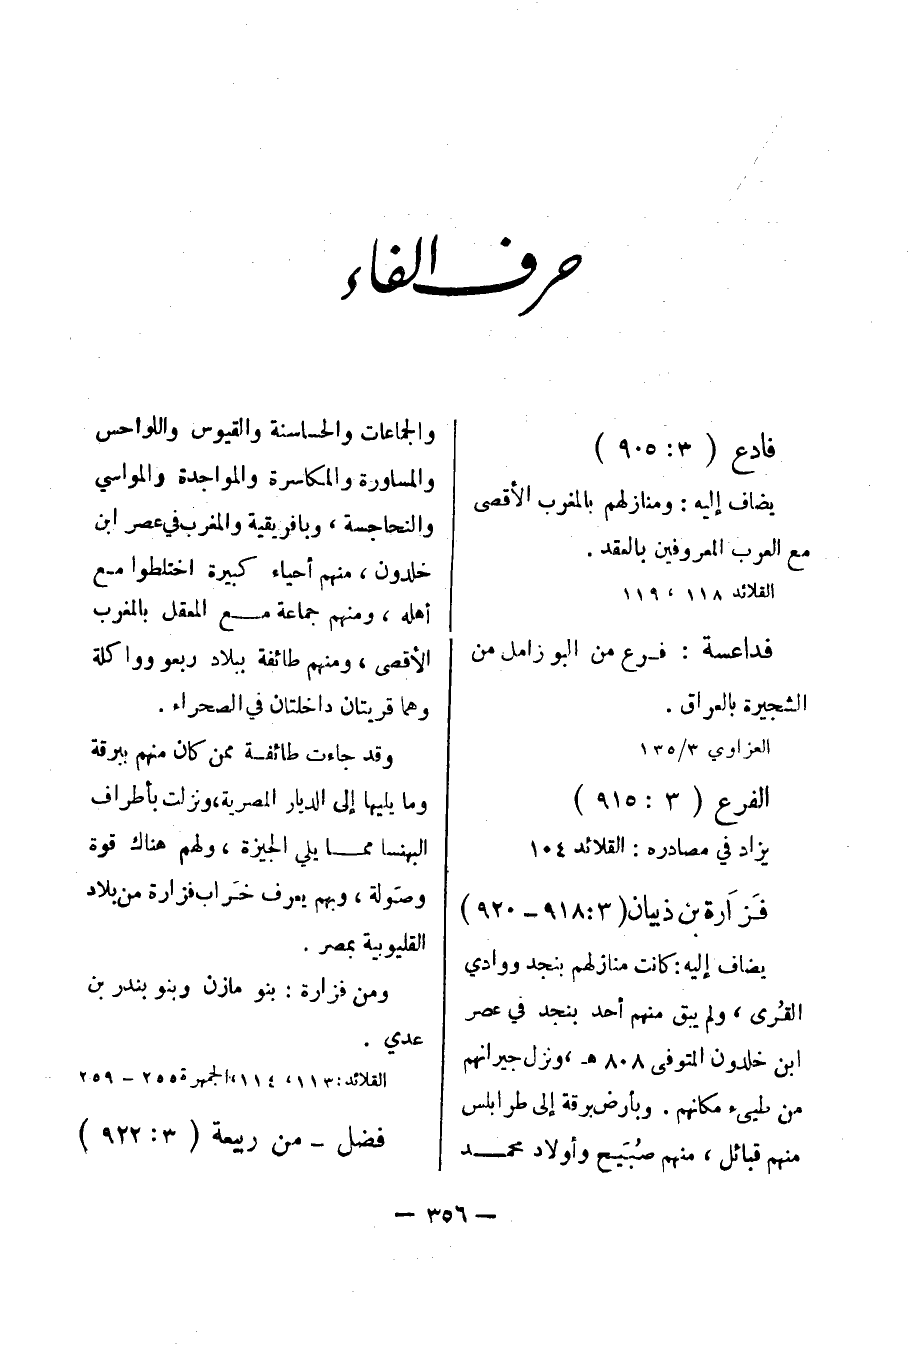 حرف الفاء
فادع ( ٣ : ٩٠٥ )
يضاف إليه : ومنازلهم بالمغرب الأقصى
مع العرب المعروفين بالعقد .
القلائد ١١٨ ، ١١٩
فداعسة : فرع من البو زامل من
الشجيرة بالعراق .
العزاوي ٣/ ١٣٥
الفرع ( ٣ : ٩١٥ )
يزاد في مصادره : القلائد ١٠٤
فَزَارة بن ذبيان ( ٣ : ٩١٨ – ٩٢٠ )
يضاف إليه : كانت منازلهم بنجد ووادي
القُرى ، ولم يبق منهم أحد بنجد في عصر
ابن خلدون المتوفى ٨٠٨ هـ ، ونزل جيرانهم
من طييء مكانهم . وبأرض برقة إلى طرابلس
منهم قبائل ، منهم صُبَيح وأولاد محمد
والجماعات والحساسنة والقيوس واللواحس
والمساورة والمكاسرة والمواجدة والمواسي
والنحاجسة ، وبافريقية والمغرب في عصر ابن
خلدون ، منهم أحياء كبيرة اختلطوا مع
أهله ، ومنهم جماعة مع المعقل بالمغرب
الأقصى ، ومنهم طائفة ببلاد ربعو وواكلة
وهما قريتان داخلتان في الصحراء .
وقد جاءت طائفة ممن كان منهم ببرقة
وما يليها إلى الديار المصرية ، ونزلت بأطراف
البهنسا مما يلي الجيزة ، ولهم هناك قوة
وصَولة ، وبهم يعرف خَراب فزارة من بلاد
القليوبية بمصر .
ومن فزارة : بنو مازن وبنو بندر بن
عدي .
القلائد : ١١٣ ، ١١٤ ، الجمهرة ٢٥٥ – ٢٥٩
فضل – من ربيعة ( ٣ : ٩٢٢ )
— ٣٥٦ —